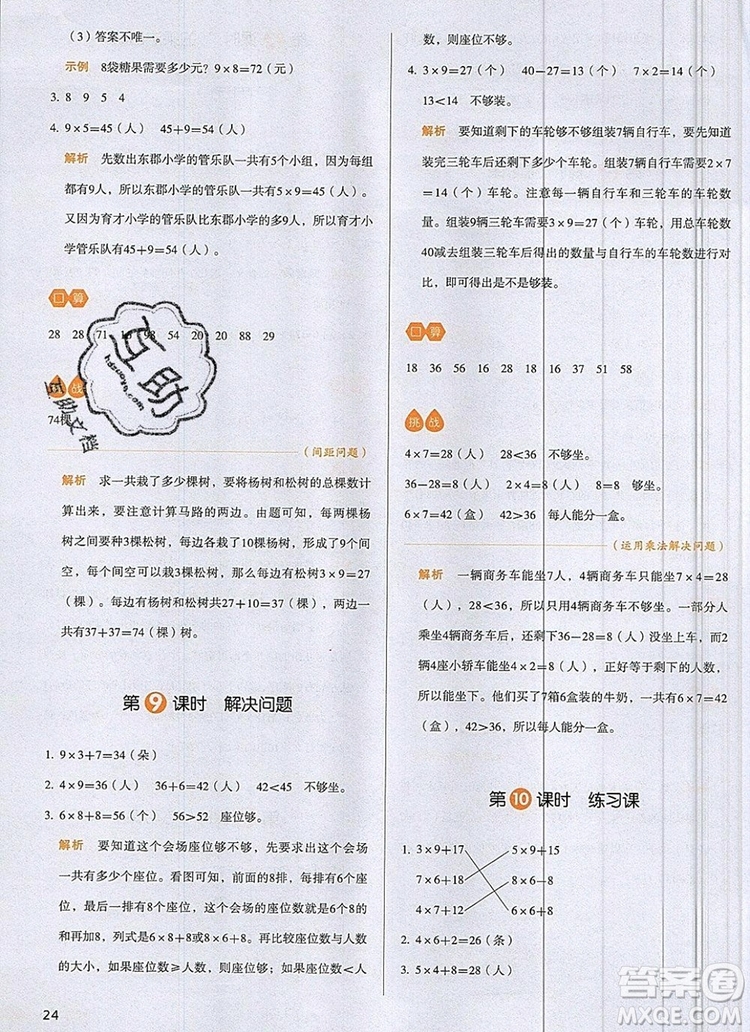 (3) 答案不唯一。
示例 8袋糖果需要多少元？9×8=72（元）
3. 8 9 5 4
4. 9×5=45（人） 45+9=54（人）
解析 先数出东郡小学的管乐队一共有5个小组，因为每组
都有9人，所以东郡小学的管乐队一共有5×9=45（人）。
又因为育才小学的管乐队比东郡小学的多9人，所以育才小
学管乐队有45+9=54（人）。
口算
28 28 71 16 98 54 20 20 88 29
挑战
74棵
（间距问题）
解析 求一共栽了多少棵树，要将杨树和松树的总棵数计
算出来，要注意计算马路的两边。由题可知，每两棵杨
树之间有3棵松树，10棵杨树之间共形成了9个空，每
个空间栽3棵松树，那么每边就有松树3×9=27
（棵）。每边有杨树和松树共27+10=37（棵），两边一
共有37+37=74（棵）树。
第9课时 解决问题
1. 9×3+7=34（朵）
2. 4×9=36（人） 36+6=42（人） 42<45 不够坐。
3. 6×8+8=56（个） 56>52 座位够。
解析 要知道这个会场座位够不够，先要求出这个会场
一共有多少个座位。看图可知，前面的8排，每排有6
个座位，最后一排有8个座位，这个会场的座位数就是8个6
和8的和，列式是6×8+8=56（个）。再比较座位数与人数
的大小，如果座位数≥人数，则座位够；如果座位数<人
24
数，则座位不够。
4. 3×9=27（个） 40-27=13（个） 7×2=14（个）
13<14 不够装。
解析 要知道剩下的车轮够不够组装7辆自行车，要知道组
装完三轮车后还剩多少个车轮。组装7辆自行车需要2×7
=14（个）车轮。注意每辆自行车和三轮车的车轮数是不
同的。组装9辆三轮车需要3×9=27（个）车轮，用总车轮数
40减去组装三轮车后得出的数量与自行车的车轮数进行对
比，即可得出是不是够装。
口算
18 36 56 16 28 18 16 37 51 58
挑战
4×7=28（人） 28<36 不够坐。
36-28=8（人） 2×4=8（人） 8=8 够坐。
6×7=42（盒） 42>36 每人能分一盒。
（运用乘法解决问题）
解析 一辆商务车能坐7人，4辆商务车只能坐7×4=28
（人），28<36，所以只开4辆商务车不够坐。一部分人
乘坐4辆商务车后，还剩下36-28=8（人）没坐上车，而2辆
4座小轿车能坐4×2=8（人），正好等于剩下的人数，
所以座位正好够坐。他们买了7箱6盒装的牛奶，一共有7×6=42
（盒），42>36，所以每人能分一盒。
第10课时 练习课
1. 3×9+17 5×9+15
7×6+18 8×6+8
4×7+12 6×6+8
2. 4×6+2=26（条）
3. 5×4+8=28（人）
互助
hdzuoye.com
互助文档
答案圈
MXQE.COM